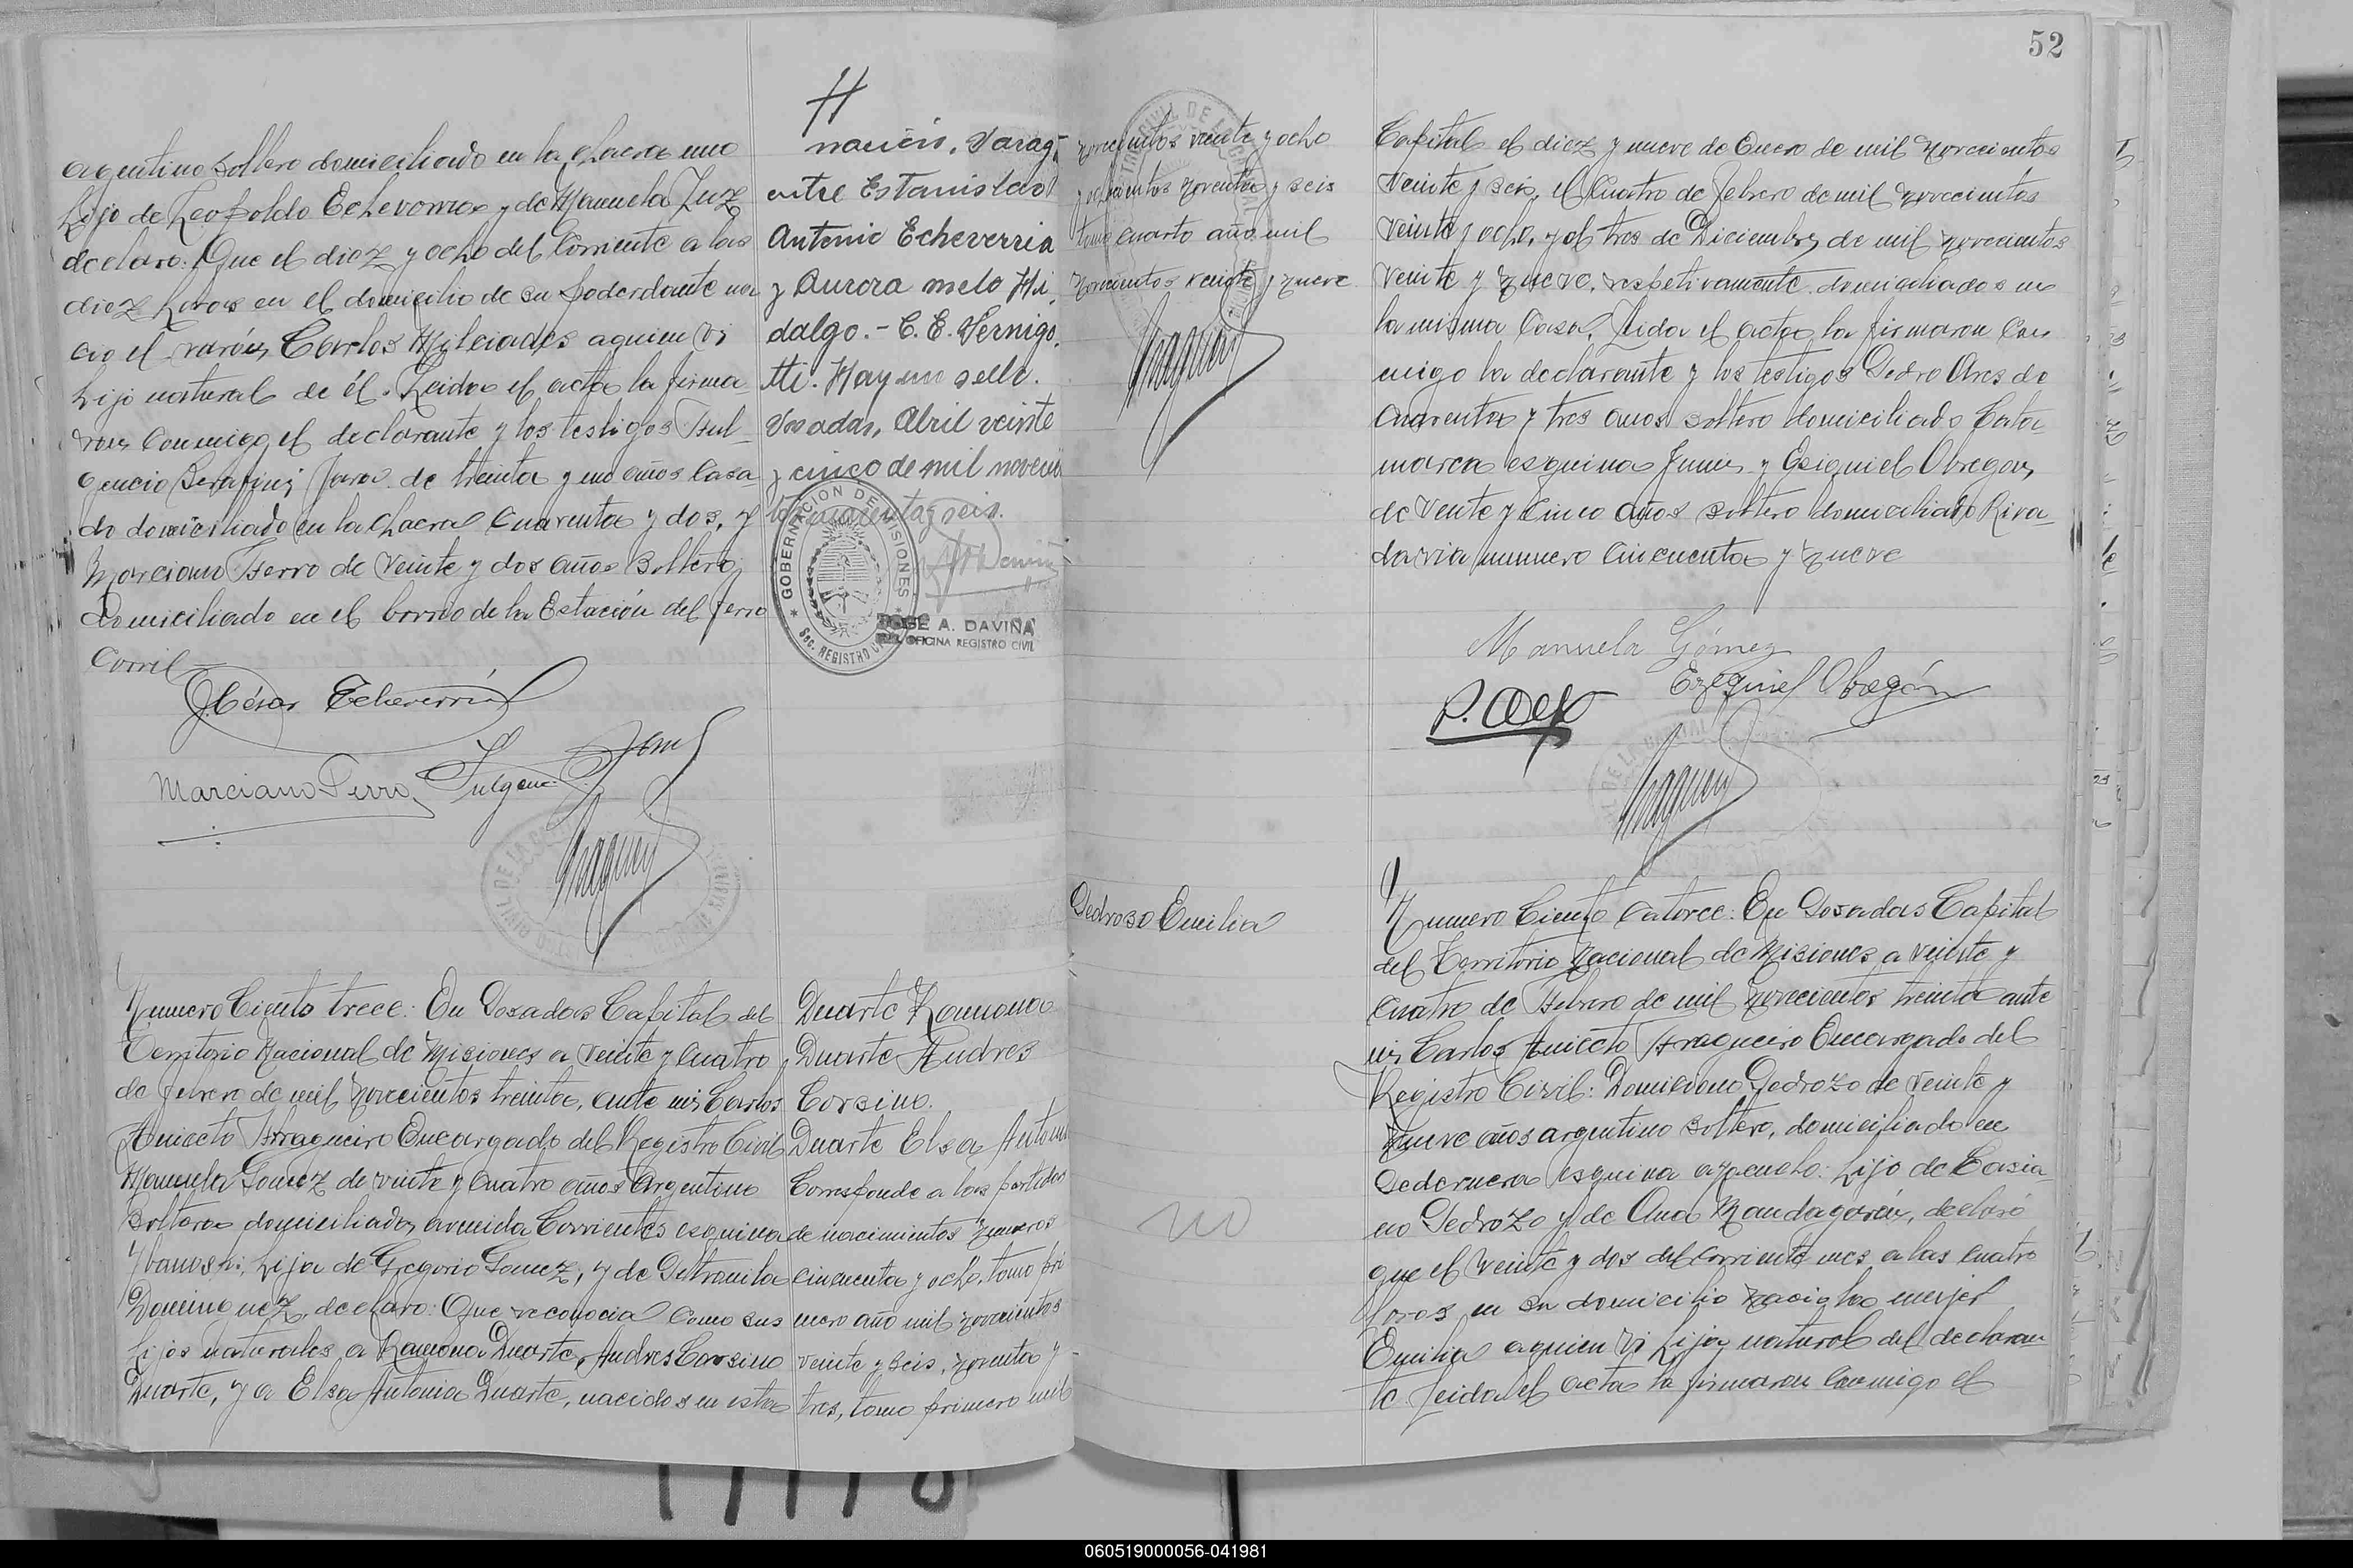 argentino soltero domiciliado en la chacra uno
hijo de Leopoldo Echeverria y de Manuela Luz
declaro: Que el diez y ocho del Corriente a las
diez horas en el domicilio de su poderdante na
cio el varón Carlos Milciades a quien vi
hijo natural de él. Leida el acta la firma
ron conmigo el declarante y los testigos Ful
gencio Serafin Jara de treinta y un años Casa
do domiciliado en la chacra Cuarenta y dos, y
Marciano Ferro de Veinte y dos años Soltero
Domiciliado en el barrio de la Estación del ferro
Carril
J. César Echeverria
Marciano Ferro
Fulgenc Jara
Numero Ciento trece: En Posadas Capital del
Territorio Nacional de Misiones a veinte y cuatro
de febrero de mil novecientos treinta, ante mi Carlos
Aniceto Fragueiro Encargado del Registro Civil
Manuela Gomez de veinte y cuatro años Argentina
Soltera domiciliada avenida Corrientes esquina
hija de Gregorio Gomez, y de Petronila
Dominguez, declaro: Que reconocia como sus
hijos naturales a Ramona Duarte, Andres Corsino
Duarte, y a Elsa Antonia Duarte, nacidos en esta
entre Estanislao
Antonio Echeverria
y Aurora melo Hi
dalgo. - C. E. Vernigo
tti. Hay un sello.
Posadas, Abril veinte
y cinco de mil novecien
tos cuarenta y seis.
GOBERNACION DE MISIONES
SEC. REGISTRO CIVIL
JOSE A. DAVIÑA
OFICINA REGISTRO CIVIL
Duarte Ramona
Duarte Andres
Corsino.
Duarte Elsa Antoni
Corresponde a las partidas
de nacimientos numeros
cincuenta y ocho, tomo pri
mero año mil novecientos
veinte y seis, noventa y
tres, tomo primero mil
novecientos veinte y ocho
y ochocientos noventa y seis
tomo cuarto año mil
novecientos veinte y nueve
Pedroso Emilia
no
52
Capital el diez y nueve de Enero de mil novecientos
veinte y seis, el Cuatro de febrero de mil novecientos
veinte y ocho, y el tres de Diciembre de mil novecientos
veinte y nueve, respetivamente domiciliados en
la misma Casa. Leida el acta la firmaron Con
migo la declarante y los testigos Pedro Ores de
Cuarenta y tres años soltero domiciliado Cata
marca esquina Junin y Esiquiel Obregon
de Vente y Cinco años soltero domiciliado Riva
davia numero Cincuenta y nueve
Manuela Gómez
Ezequiel Obregón
Numero Ciento Catorce: En Posadas Capital
del Territorio Nacional de Misiones a veinte y
Cuatro de Febrero de mil novecientos treinta ante
mi Carlos Aniceto Fragueiro Encargado del
Registro Civil: Domiciano Pedrozo de veinte y
nueve años argentino soltero, domiciliado en
Pedernera esquina ayacucho: hijo de Casia
no Pedrozo y de Ana Mandagarán, declaró
que el veinte y dos del corriente mes a las cuatro
horas en su domicilio nacio la mujer
Emilia a quien vi hija natural del declaran
te. Leida el acta la firmaron Conmigo el
060519000056-041981